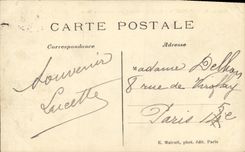 CARTE POSTALE
Correspondance
Adresse
Souvenir
Lucette
Madame Delhom
8 rue de
Paris
E. Malcuit, phot. édit. Paris